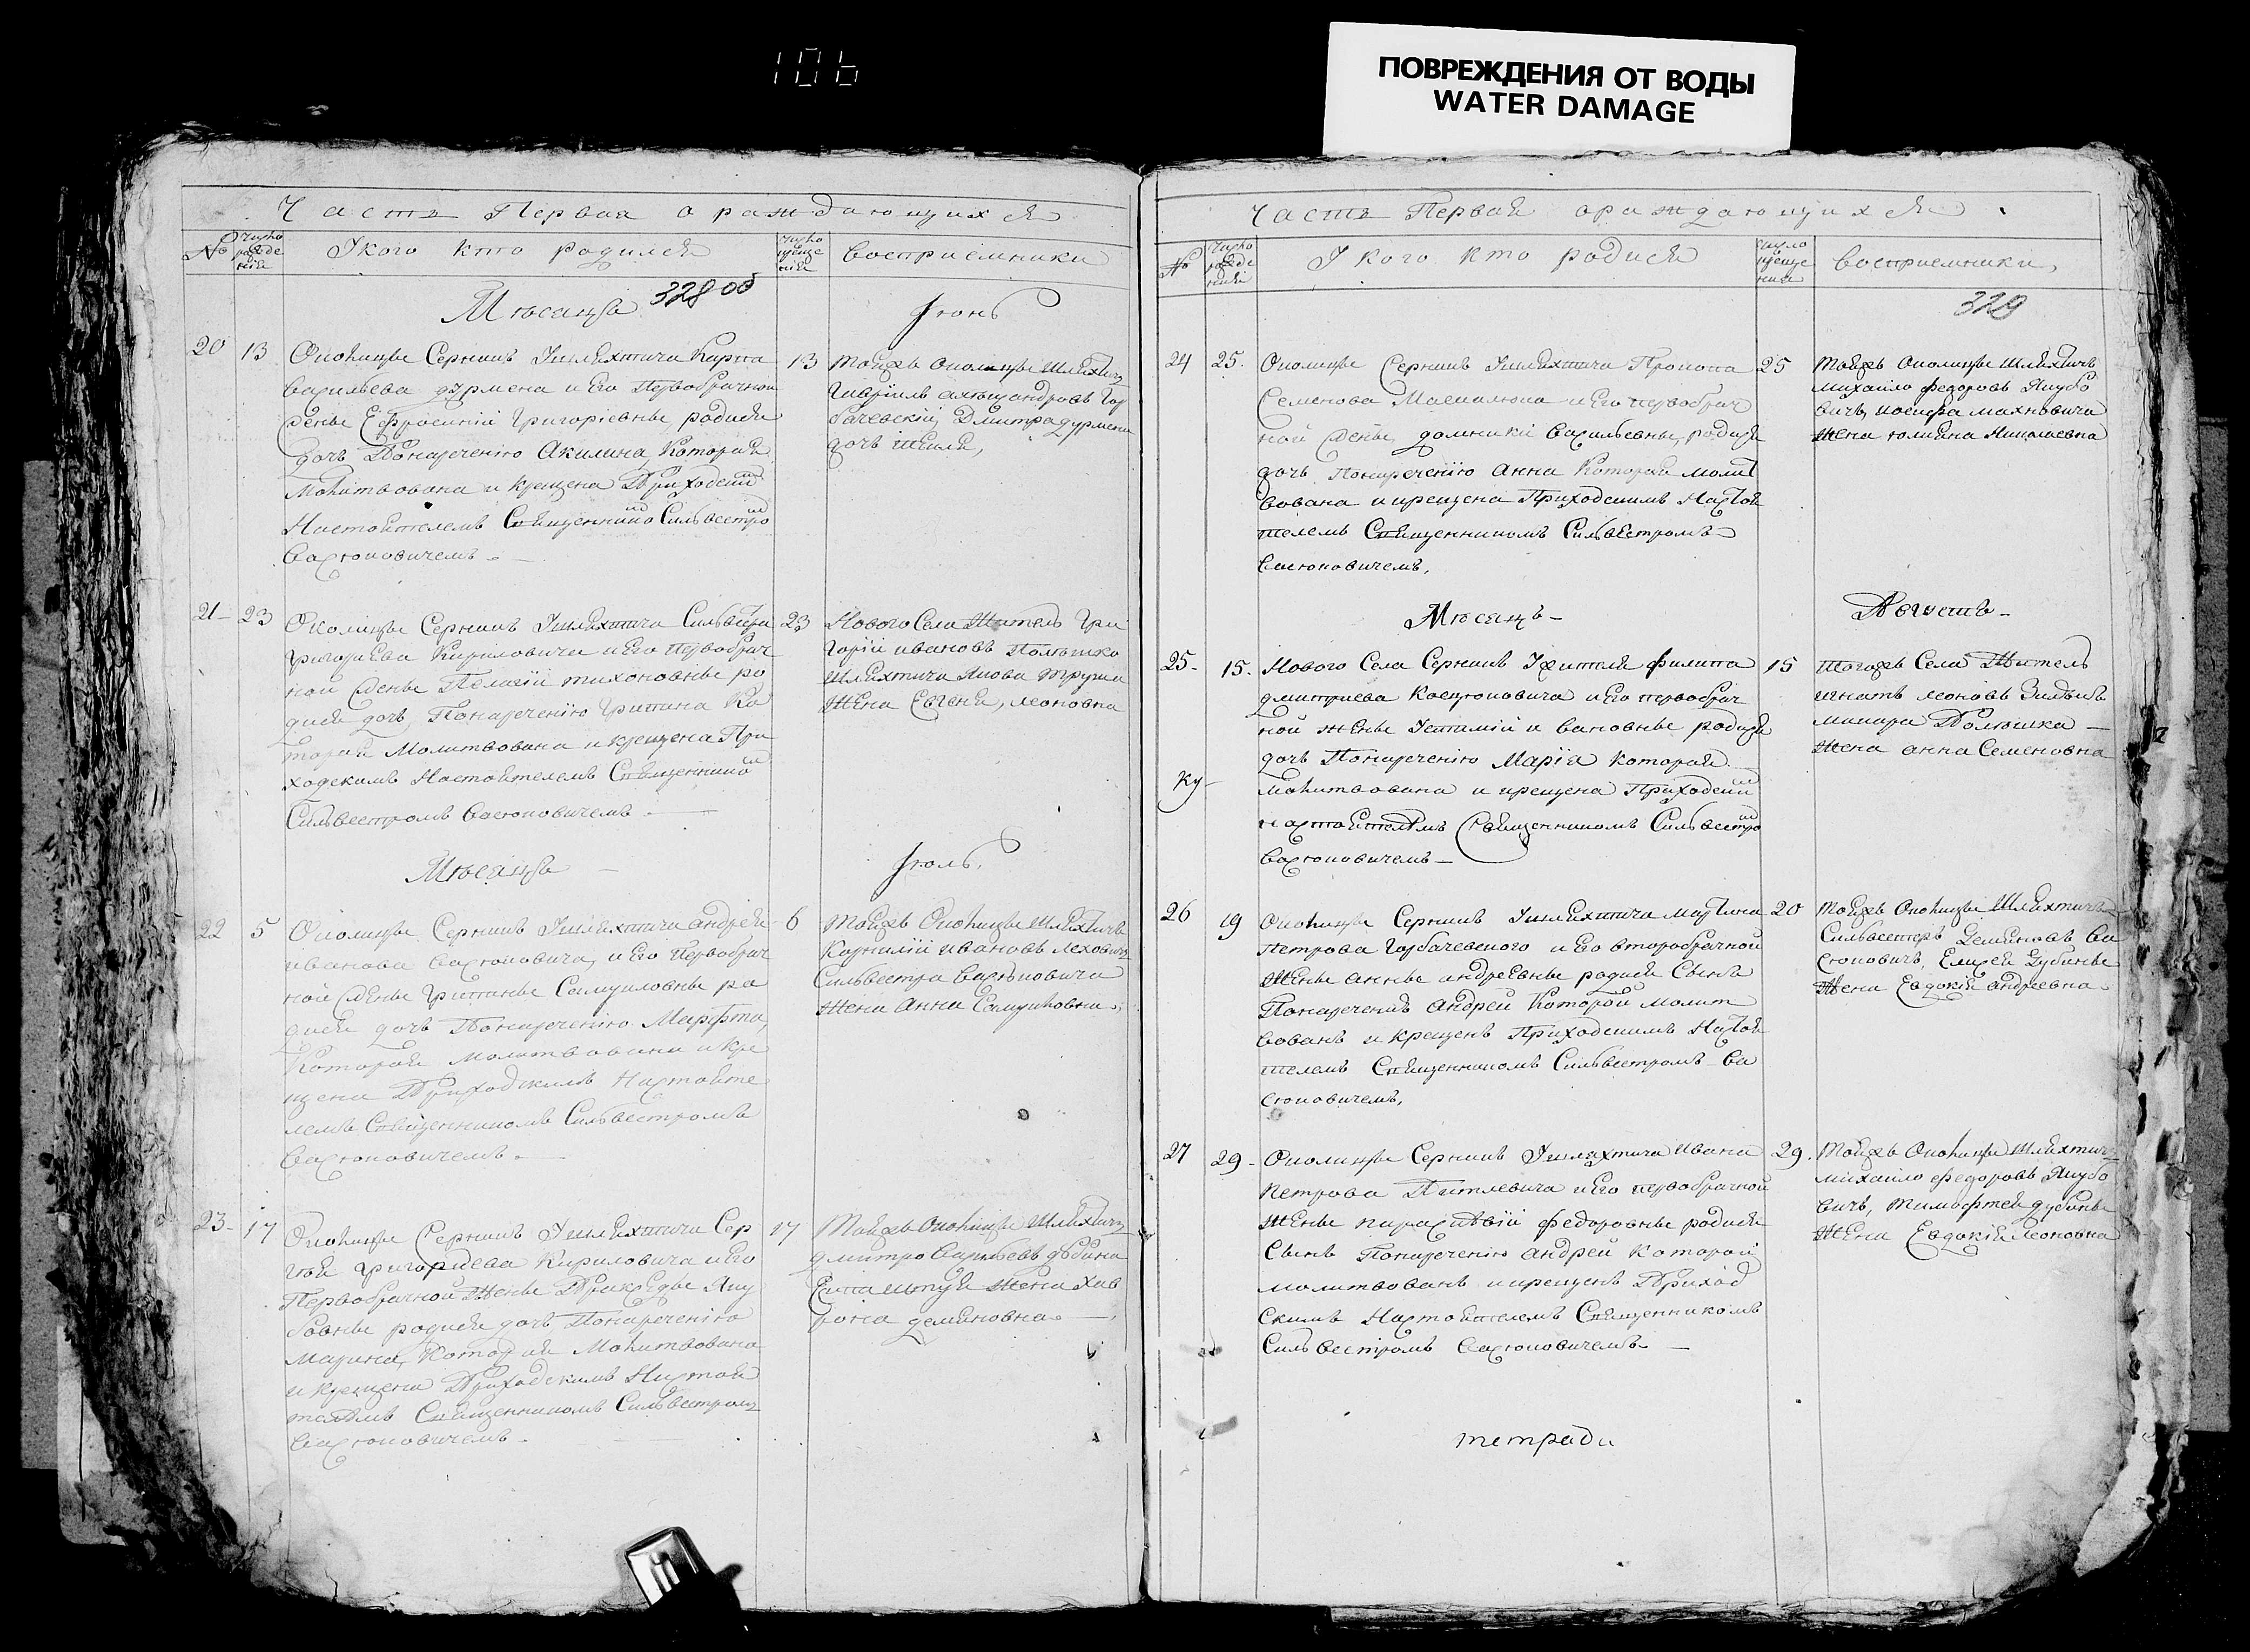 106
ПОВРЕЖДЕНИЯ ОТ ВОДЫ
WATER DAMAGE
Часть Первая о раждающихся
№
Число рожде нія
У кого кто родился
Число креще нія
Восприемники
Мѣсяца
328 об
Іюнь
20 13
Околицы Серникъ У шляхтича Карпа
Васильева дурмена и Его Первобрачной
женѣ Ефросиніи Григоріевнѣ родися
дочь Понареченію Акилина, Которая
Молитвована и крещена Приходским
Настоятелемъ Священником Сильвестром
Васюковичемъ.
13
Тойжъ Околицы Шляхтич
Гавріилъ Александровъ Гор
бачевскій, Дмитра дурмена
дочь
21 23
Околицы Серникъ У шляхтича Сильвестра
Григорьева Кириловича и Его Первобрач
ной женѣ Пелагіи тихоновнѣ ро
дися дочь, Понареченію Христина Ко
торая Молитвована и крещена При
ходскимъ Настоятелемъ Священником
Сильвестромъ Васюковичемъ.
23
Нового Села Житель Гри
горій ивановъ
Шляхтича Якова
Жена Евгенія, леоновна
Мѣсяца
Іюль.
22 5
Околицы Серникъ У шляхтича андрея
иванова Васюковича, и Его Первобрач
ной женѣ Христинѣ Самуиловнѣ ро
дися дочь Понареченію Марфта,
Которая молитвована и кре
щена Приходскимъ Настояте
лемъ Священникомъ Сильвестромъ
Васюковичемъ.
6
Тойжъ Околицы Шляхтичъ
Корнилій ивановъ Леховичъ
Сильвестра Васюковича
Жена Анна Самуиловна.
23 17
Околицы Серникъ У шляхтича Сер
гея григорьева Кириловича и Его
Первобрачной Женѣ Параскедѣ Яку
бовнѣ родися дочь Понареченію
Марина, Которая Молитвована
и крещена Приходскимъ Настоя
телемъ Священникомъ Сильвестромъ
Васюковичемъ.
17
Тойжъ Околицы Шляхтичъ
дмитро Васильевъ
Жена Хав
рона демяновна.
Часть Первая о раждающихся
№
Число рожде нія
У кого кто родися
Число креще нія
Восприемники,
329
24 25.
Околицы Серникъ У шляхтича Прокопа
Семенова и Его первобрач
ной женѣ домникіи Васильевнѣ, родися
дочь Понареченію Анна Которая молит
вована и крещена Приходскимъ Настоя
телемъ Священникомъ Сильвестромъ
Васюковичемъ.
25
Тойжъ Околицы Шляхтичъ
Михайло федоровъ Якубо
вичъ, иосифа Махновича
Жена юлияна Николаевна
Мѣсяцъ
Августъ
25 15.
Нового Села Серникъ У жителя филипа
дмитриева Косцюковича и Его первобрач
ной женѣ Устимии и вановнѣ родися
дочь Понареченію Марія которая
молитвована и крещена Приходским
настоятелемъ Священникомъ Сильвестром
Васюковичемъ
ку
15
Тогожъ Села Житель
игнатъ леоновъ
макара
Жена анна Семеновна
26 19
Околицы Серникъ У шляхтича Мартина
Петрова Горбачевского и Его второбрачной
Женѣ аннѣ андреевнѣ родися Сынъ
Понареченію Андрей Которой молит
вованъ и крещенъ Приходскимъ Настоя
телемъ Священникомъ Сильвестромъ Ва
сюковичемъ,
20
Тойжъ Околицы Шляхтичъ
Сильвестеръ Демяновъ Ва
сюковичъ, Елисея Дубины
Жена Евдокія андреевна.
27 29
Околицы Серникъ У шляхтича Ивана
Петрова Питлевича и Его первобрачной
Женѣ параскевіи федоровнѣ родися
Сынъ Понареченію андрей Которой
молитвованъ и крещенъ Приход
скимъ Настоятелемъ Священникомъ
Сильвестромъ Васюковичемъ.
29.
Тойжъ Околицы Шляхтич
михайло федоровъ Якубо
вичъ, тимофтея дубины
Жена Евдокія Леоновна
тетради